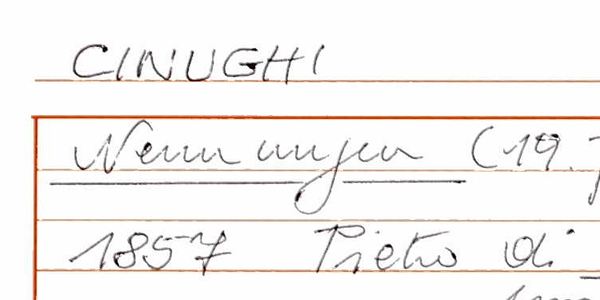 CINUGHI
Nennungen (19.
1857 Pietro di